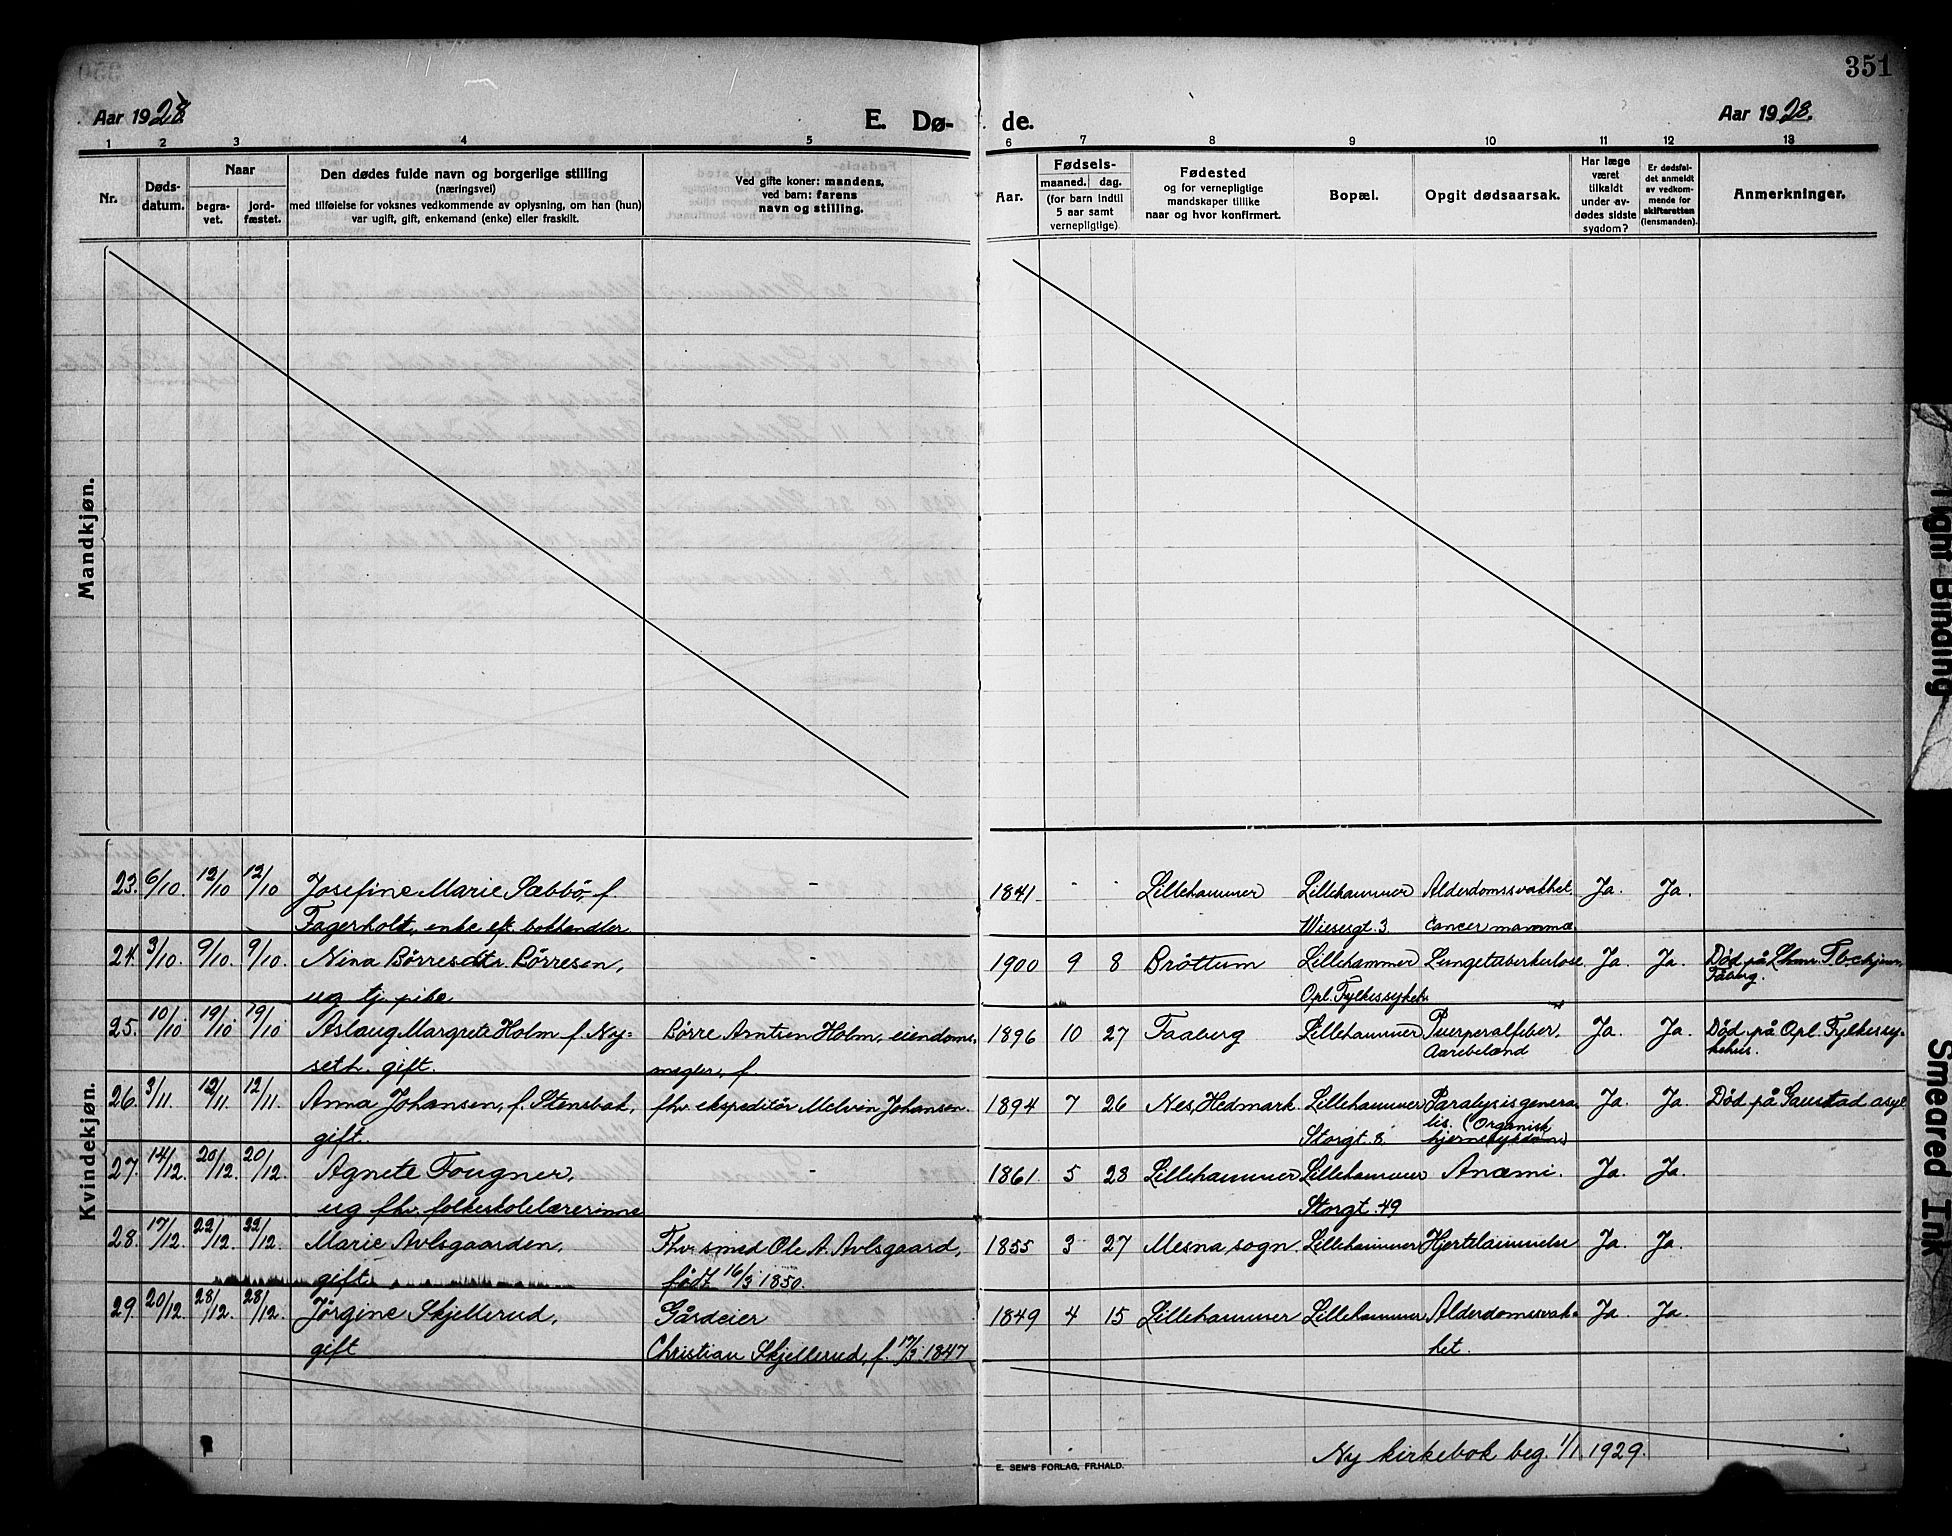 351
Aar 1928.
E. Dø- de.
Aar 1928.
1 2 3 4 5 6 7 8 9 10 11 12 13
Nr.
Døds-
datum.
Naar
begra-
vet.
jord-
fæstet.
Den dødes fulde navn og borgerlige stilling
(næringsvei)
med tilføielse for voksnes vedkommende av oplysning, om han (hun)
var ugift, gift, enkemand (enke) eller fraskilt.
Ved gifte koner: mandens,
ved barn: farens
navn og stilling.
Aar.
Fødsels-
maaned. dag.
(for barn indtil
5 aar samt
vernepligtige)
Fødested
og for vernepligtige
mandskaper tillike
naar og hvor konfirmert.
Bopæl.
Opgit dødsaarsak.
Har læge
været
tilkaldt
under av-
dødes sidste
sygdom?
Er dødsfal-
det anmeldt
av vedkom-
mende for
skifteretten
(lensmanden).
Anmerkninger.
Mandkjøn.
Kvindekjøn.
23. 6/10. 12/10 12/10 Josefine Marie Sæbbö, f. - 1841 - - Lillehammer Lillehammer Alderdomssvakhet. Ja. Ja.
Fagerholt, enke eft. bokhandler. Wiesesgt. 3. Cancer mammæ.
24. 3/10. 9/10. 9/10. Nina Børresdtr. Børresen, - 1900 9 8 Brøttum Lillehammer Lungetuberkulose Ja. Ja. Død på Lhmr. Tb.c.hjem,
ug tj. pike Opl. Fylkessykeh. Faaberg.
25. 10/10 19/10 19/10 Aslaug Margrete Holm f. Ny= Børre Arntsen Holm, eiendoms= 1896 10 27 Faaberg Lillehammer Puerperalfeber, Ja. Ja. Død på Opl. Fylkessy-
seth. gift. megler, f. Aarebetænd kehus.
26. 3/11. 12/11. 12/11. Anna Johansen, f. Stensbak, fhv. ekspeditör Melvin Johansen. 1894 7 26 Nes, Hedmark. Lillehammer Paralysis genera- Ja. Ja. Død på Gaustad asyl
gift. Storgt. 8. lis. (Organisk
hjernesykdom)
27. 14/12. 20/12. 20/12. Agnete Fougner, - 1861. 5 28 Lillehammer Lillehammer Anæmi. Ja. Ja.
ug fhv. folkeskolelærerinne Storgt. 49
28. 17/12. 22/12. 22/12. Marie Avlsgaarden, Fhv. smed Ole A. Avlsgaard, 1855 3 27 Mesna sogn. Lillehammer Hjertelammelse Ja. Ja.
gift. född 16/3 1850.
29. 20/12. 28/12. 28/12. Jörgine Skjellerud, Gårdeier 1849 4 15 Lillehammer Lillehammer Alderdomssvak= Ja Ja.
gift Christian Skjellerud, f. 17/3 1847 het.
Ny kirkebok beg. 1/1 1929.
E. SEM'S FORLAG, FR.HALD.
Tight Binding
Smeared Ink